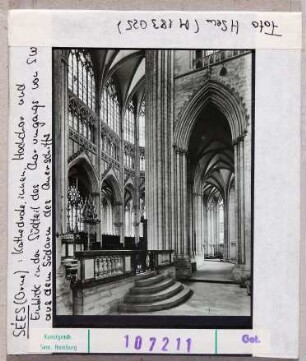 Foto Hseu (M 183 OSS)
SÉES (Orne): Kathedrale, innen, Hochchor und
Einblick in den Südteil des Chorumgangs von SW
aus dem Südarm des Querschiffs
Kunstgesch.
Sem. Hamburg
107211
Got.